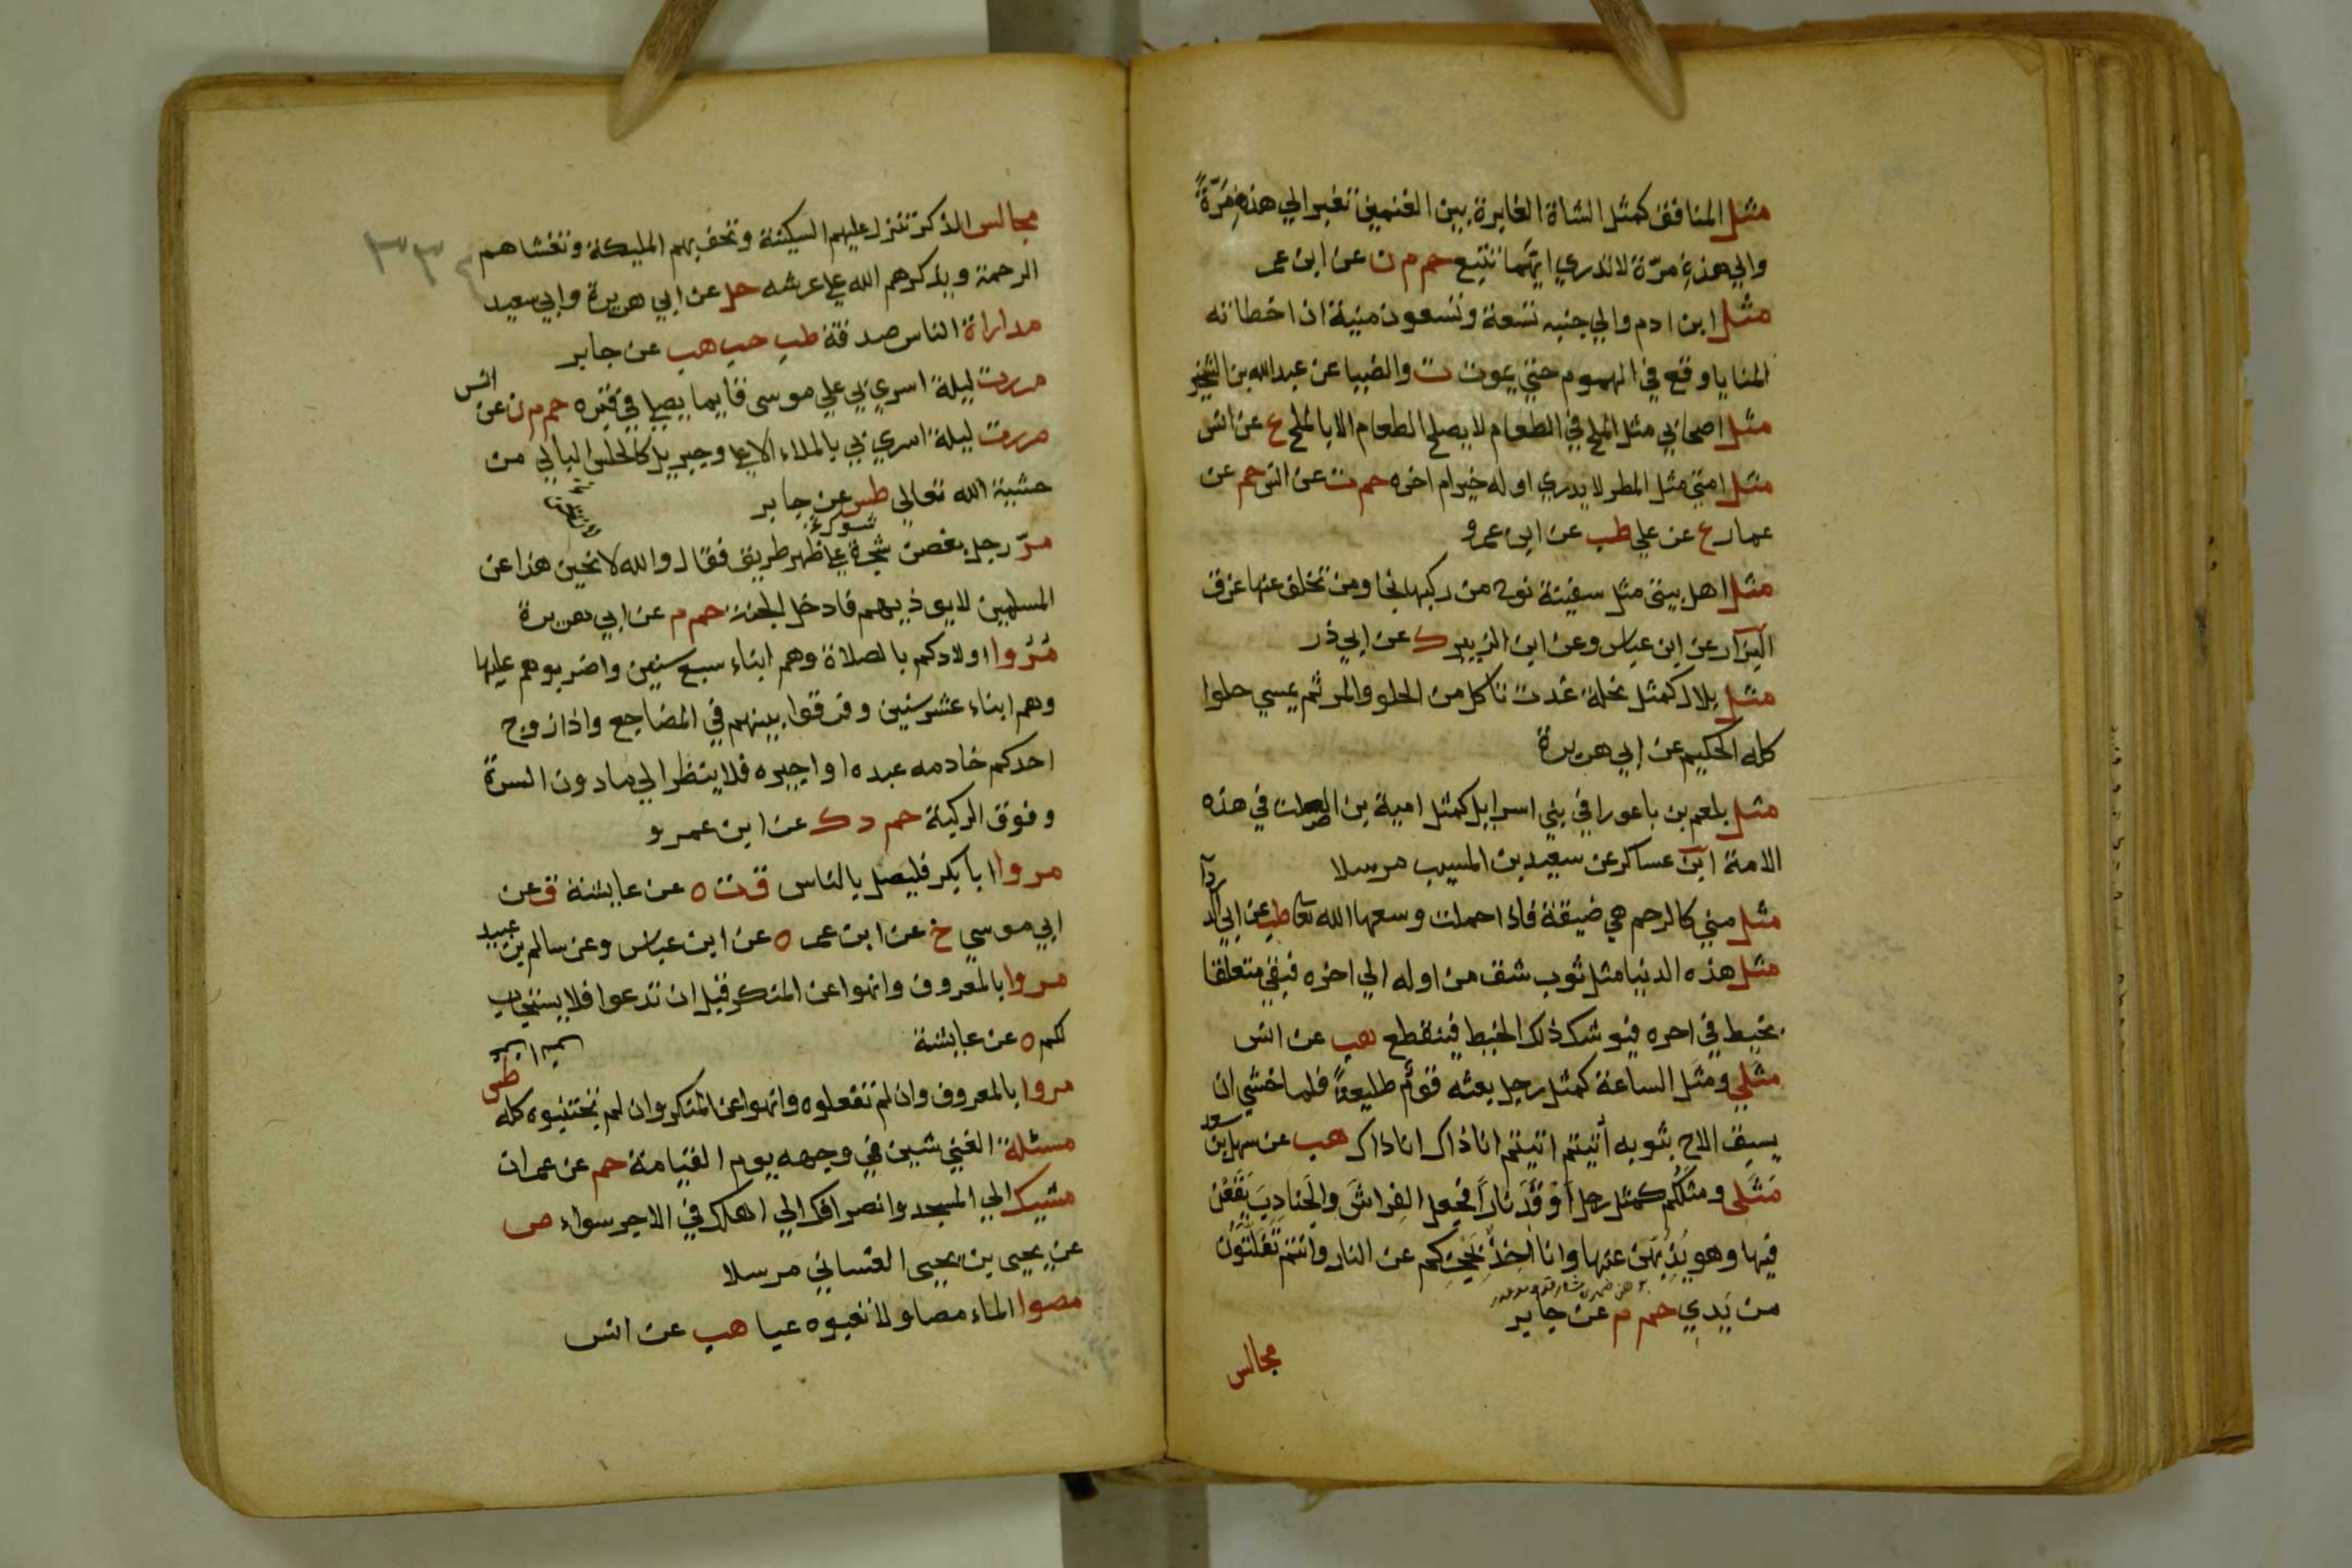 مثل المنافق كمثل الشاة العايرة بين الغنمين تعير الي هذه مرّةً
والي هذهِ مرّة لا تدري ايّهما تتبع حم م ن عن ابن عمر
مثل ابن ادم والي جنبه تسعة وتسعون منية ان اخطاته
المنايا وقع في الهموم حتى يموت ت والضيا عن عبد الله بن الشخير
مثل اصحابي مثل الملح في الطعام لا يصلح الطعام الا بالملح ع عن انس
مثل امتي مثل المطر لا يدري اوله خير ام اخره حم ت عن انس حم عن
عمار ع عن علي طب عن ابن عمرو
مثل اهل بيتي مثل سفينة نوح من ركبها نجا ومن تخلف عنها غرق
البزار عن ابن عباس وعن ابن الزبير ك عن ابي ذر
مثل بلال كمثل نحلة غدت تاكل من الحلو والمر ثم يمسي حلوا
كله الحكيم عن ابي هريرة
مثل بلعم بن باعورا في بني اسرايل كمثل امية بن الصلت في هذه
الامة ابن عساكر عن سعيد بن المسيب مرسلا
مثل مني كالرحم هي ضيقة فاذا حملت وسعها الله تعا طب عن ابي الد
ردآ
مثل هذه الدنيا مثل ثوب شق من اوله الي اخره فبقي متعلقا
بخيط في اخره فيوشك ذلك الخيط فينقطع هب عن انس
مثلي ومثل الساعة كمثل رجل بعثه قوم طليعة فلما خشي ان
يسبق الاح بثوبه أتيتم اتيتم انا ذاك انا ذاك هب عن سهل بن
سعد
مَثَلي ومثلكُم كمثل رجل اَوْقَدَ ناراً فجعل الفراشَ والجنادِبَ يَقَعْن
فيها وهو يَذِبّهن عنها وانا اخِذٌ بحُجَزِكم عن النار وانتم تَفَلّتونَ
من يَدِي حم م عن جابر
مجالس
مجالس الذكر تنزل عليهم السكينة وتحف بهم المليكة وتغشاهم
الرحمة ويذكرهم الله علي عرشه حل عن ابي هريرة وابي سعيد
مداراة الناس صدقة طب حب هب عن جابر
مررت ليلة اسري بي علي موسى قايما يصلي في قبره حم م ن عن
انس
مررت ليلة اسري بي بالملاء الاعلي وجبريل كالحلس البالي من
خشية الله تعالي طس عن جابر
مرّ رجل بغصن شجرة علي ظهر طريق فقال والله لانحين هذا عن
المسلمين لا يوذيهم فادخل الجنة حم م عن ابي هريرة
مُرُوا اولادكم بالصلاة وهم ابناء سبع سنين واضربوهم عليها
وهم ابناء عشر سنين وفرقوا بينهم في المضاجع واذا زوج
احدكم خادمه عبده او اجيره فلا ينظر الي ما دون السرة
وفوق الركبة حم د ك عن ابن عمرو
مروا ابا بكر فليصل بالناس ق ت ه عن عايشة ق عن
ابي موسي خ عن ابن عمر ه عن ابن عباس وعن سالم بن
عبيد
مروا بالمعروف وانهوا عن المنكر قبل ان تدعوا فلا يستجاب
لكم ه عن عايشة
مروا بالمعروف وان لم تفعلوه وانهوا عن المنكر وان لم تجتنبوه كله
طس
مسئلة الغني شين في وجهه يوم القيامة حم عن عمران
مشيك الي المسجد وانصرافك الي اهلك في الاجر سواء ص
عن يحيى بن يحيى الغساني مرسلا
مصوا الماء مصا ولا تعبوه عبا هب عن انس